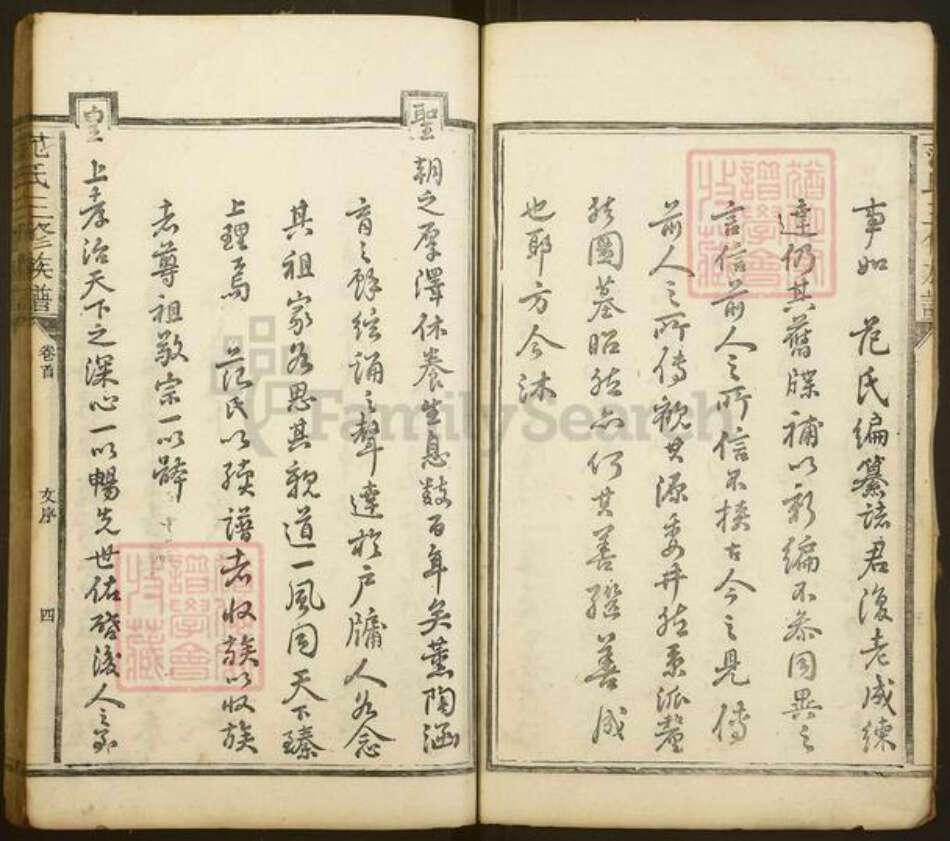 事如 范氏編纂諸君復老成練
達仍其舊牒補以新編不參同異之
言信前人之所信不挾古今之見傳
前人之所傳観其源委井然系派釐
然圖墓昭然亦何其善繼善成
也耶方今沐
聖朝之厚澤休養生息数百年矣薰陶涵
育之餘絃誦之聲達於户牖人各念
其祖家各思其親道一風同天下臻
上理焉 范氏以續譜者收族以收族
者尊祖敬宗一以
皇上孝治天下之深心一以暢先世佑啓後人之
范氏三修族譜
卷首
文序
四
FamilySearch